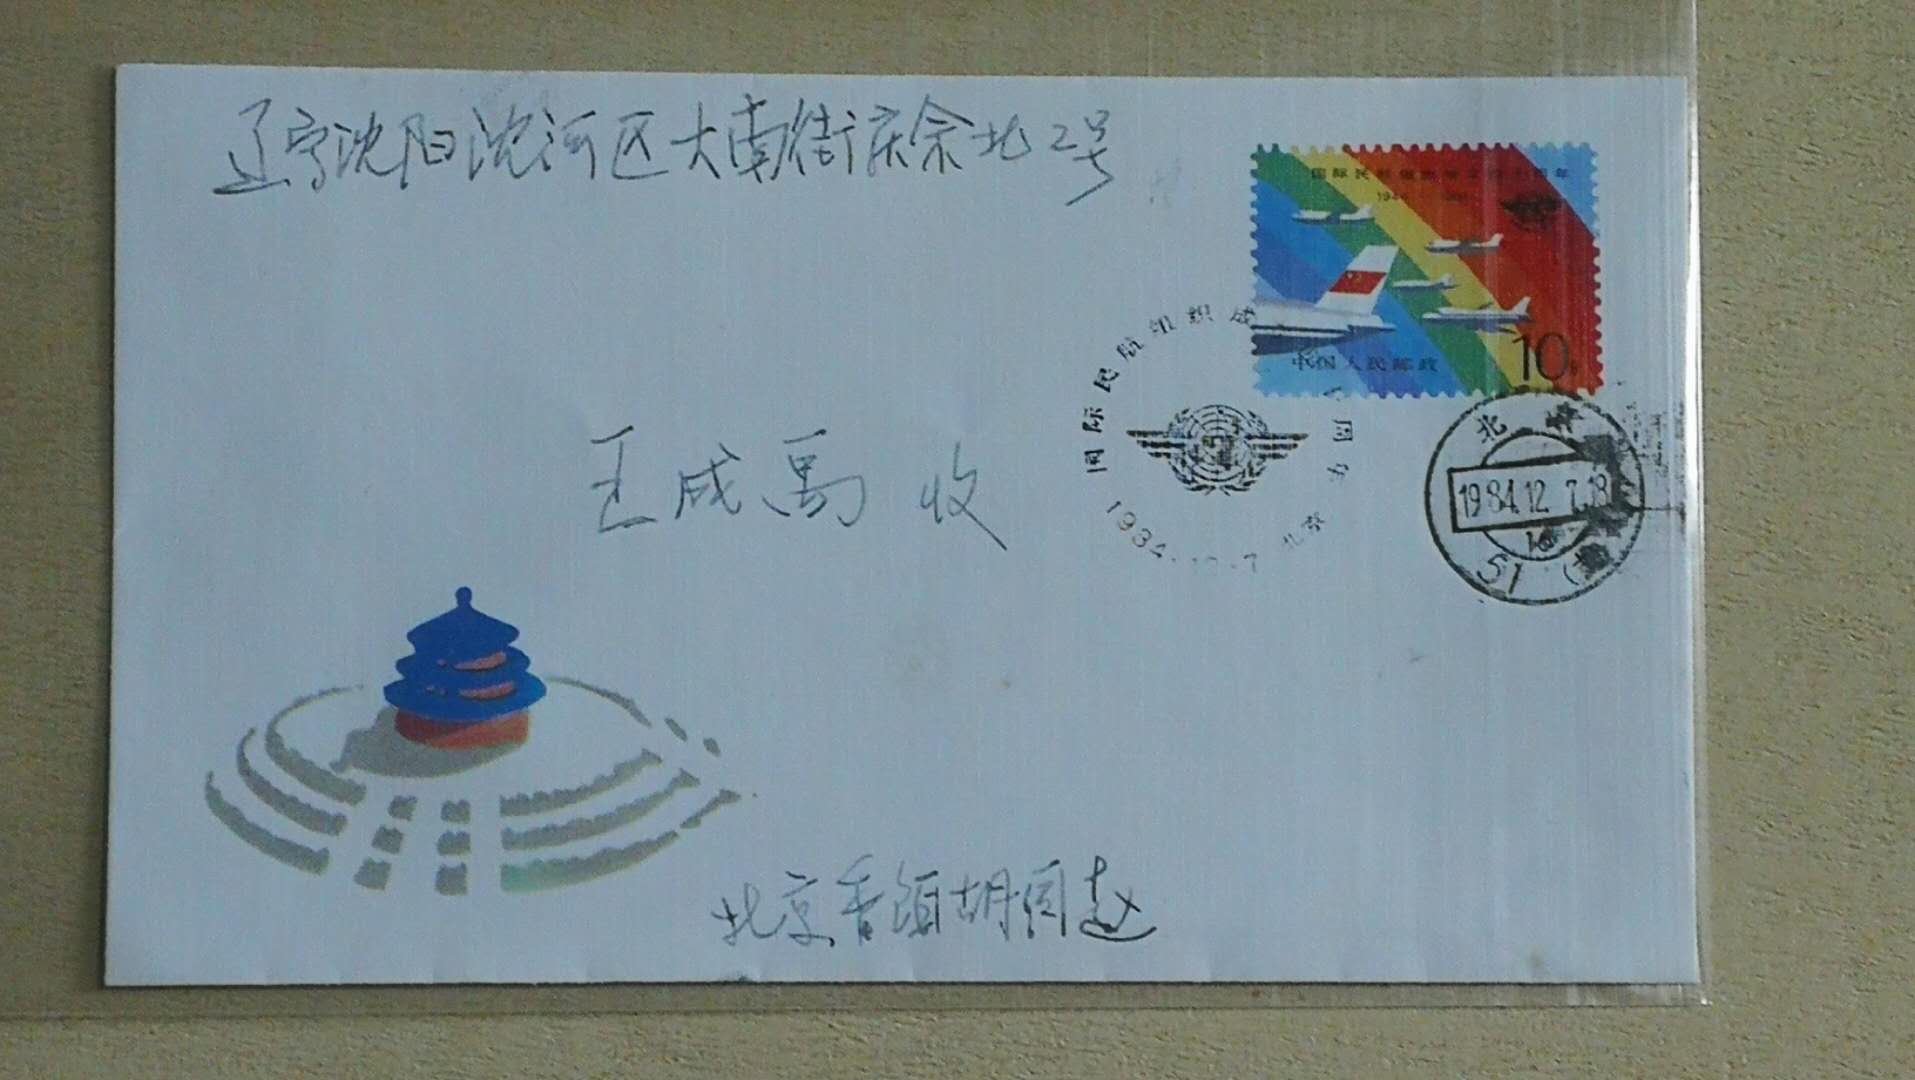 辽宁沈阳沈河区大南街庆余北2号
国际民航组织成立四十周年
中国人民邮政
10分
国际民航组织成 周年
1984.12.7 北京
北京
1984.12.7.18
51
王成禹 收
北京香饵胡同赵